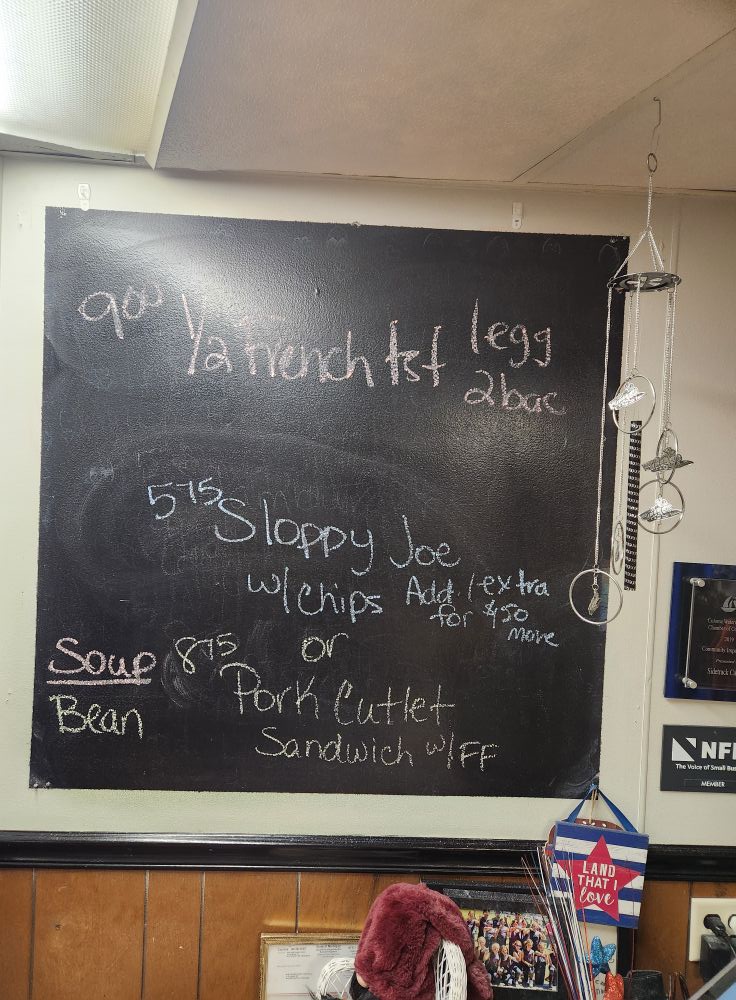 9.00 1/2 French tst 1egg
2bac
5.75 Sloppy Joe
w/chips Add. 1 extra
for 4.50
more
Soup 8.75 or
Bean Pork Cutlet
Sandwich w/FF
2019
Sidetrack
NFI
The Voice of Small Bus
MEMBER
LAND
THAT I
love